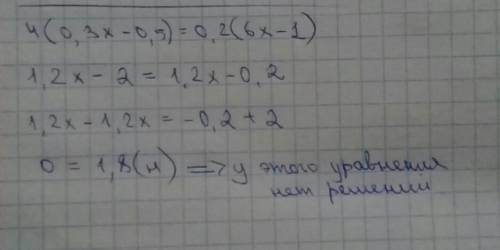 4(0,3x-0,5)=0,2(6x-1)
1,2x-2=1,2x-0,2
1,2x-1,2x=-0,2+2
0=1,8(н) => у этого уравнения
нет решений